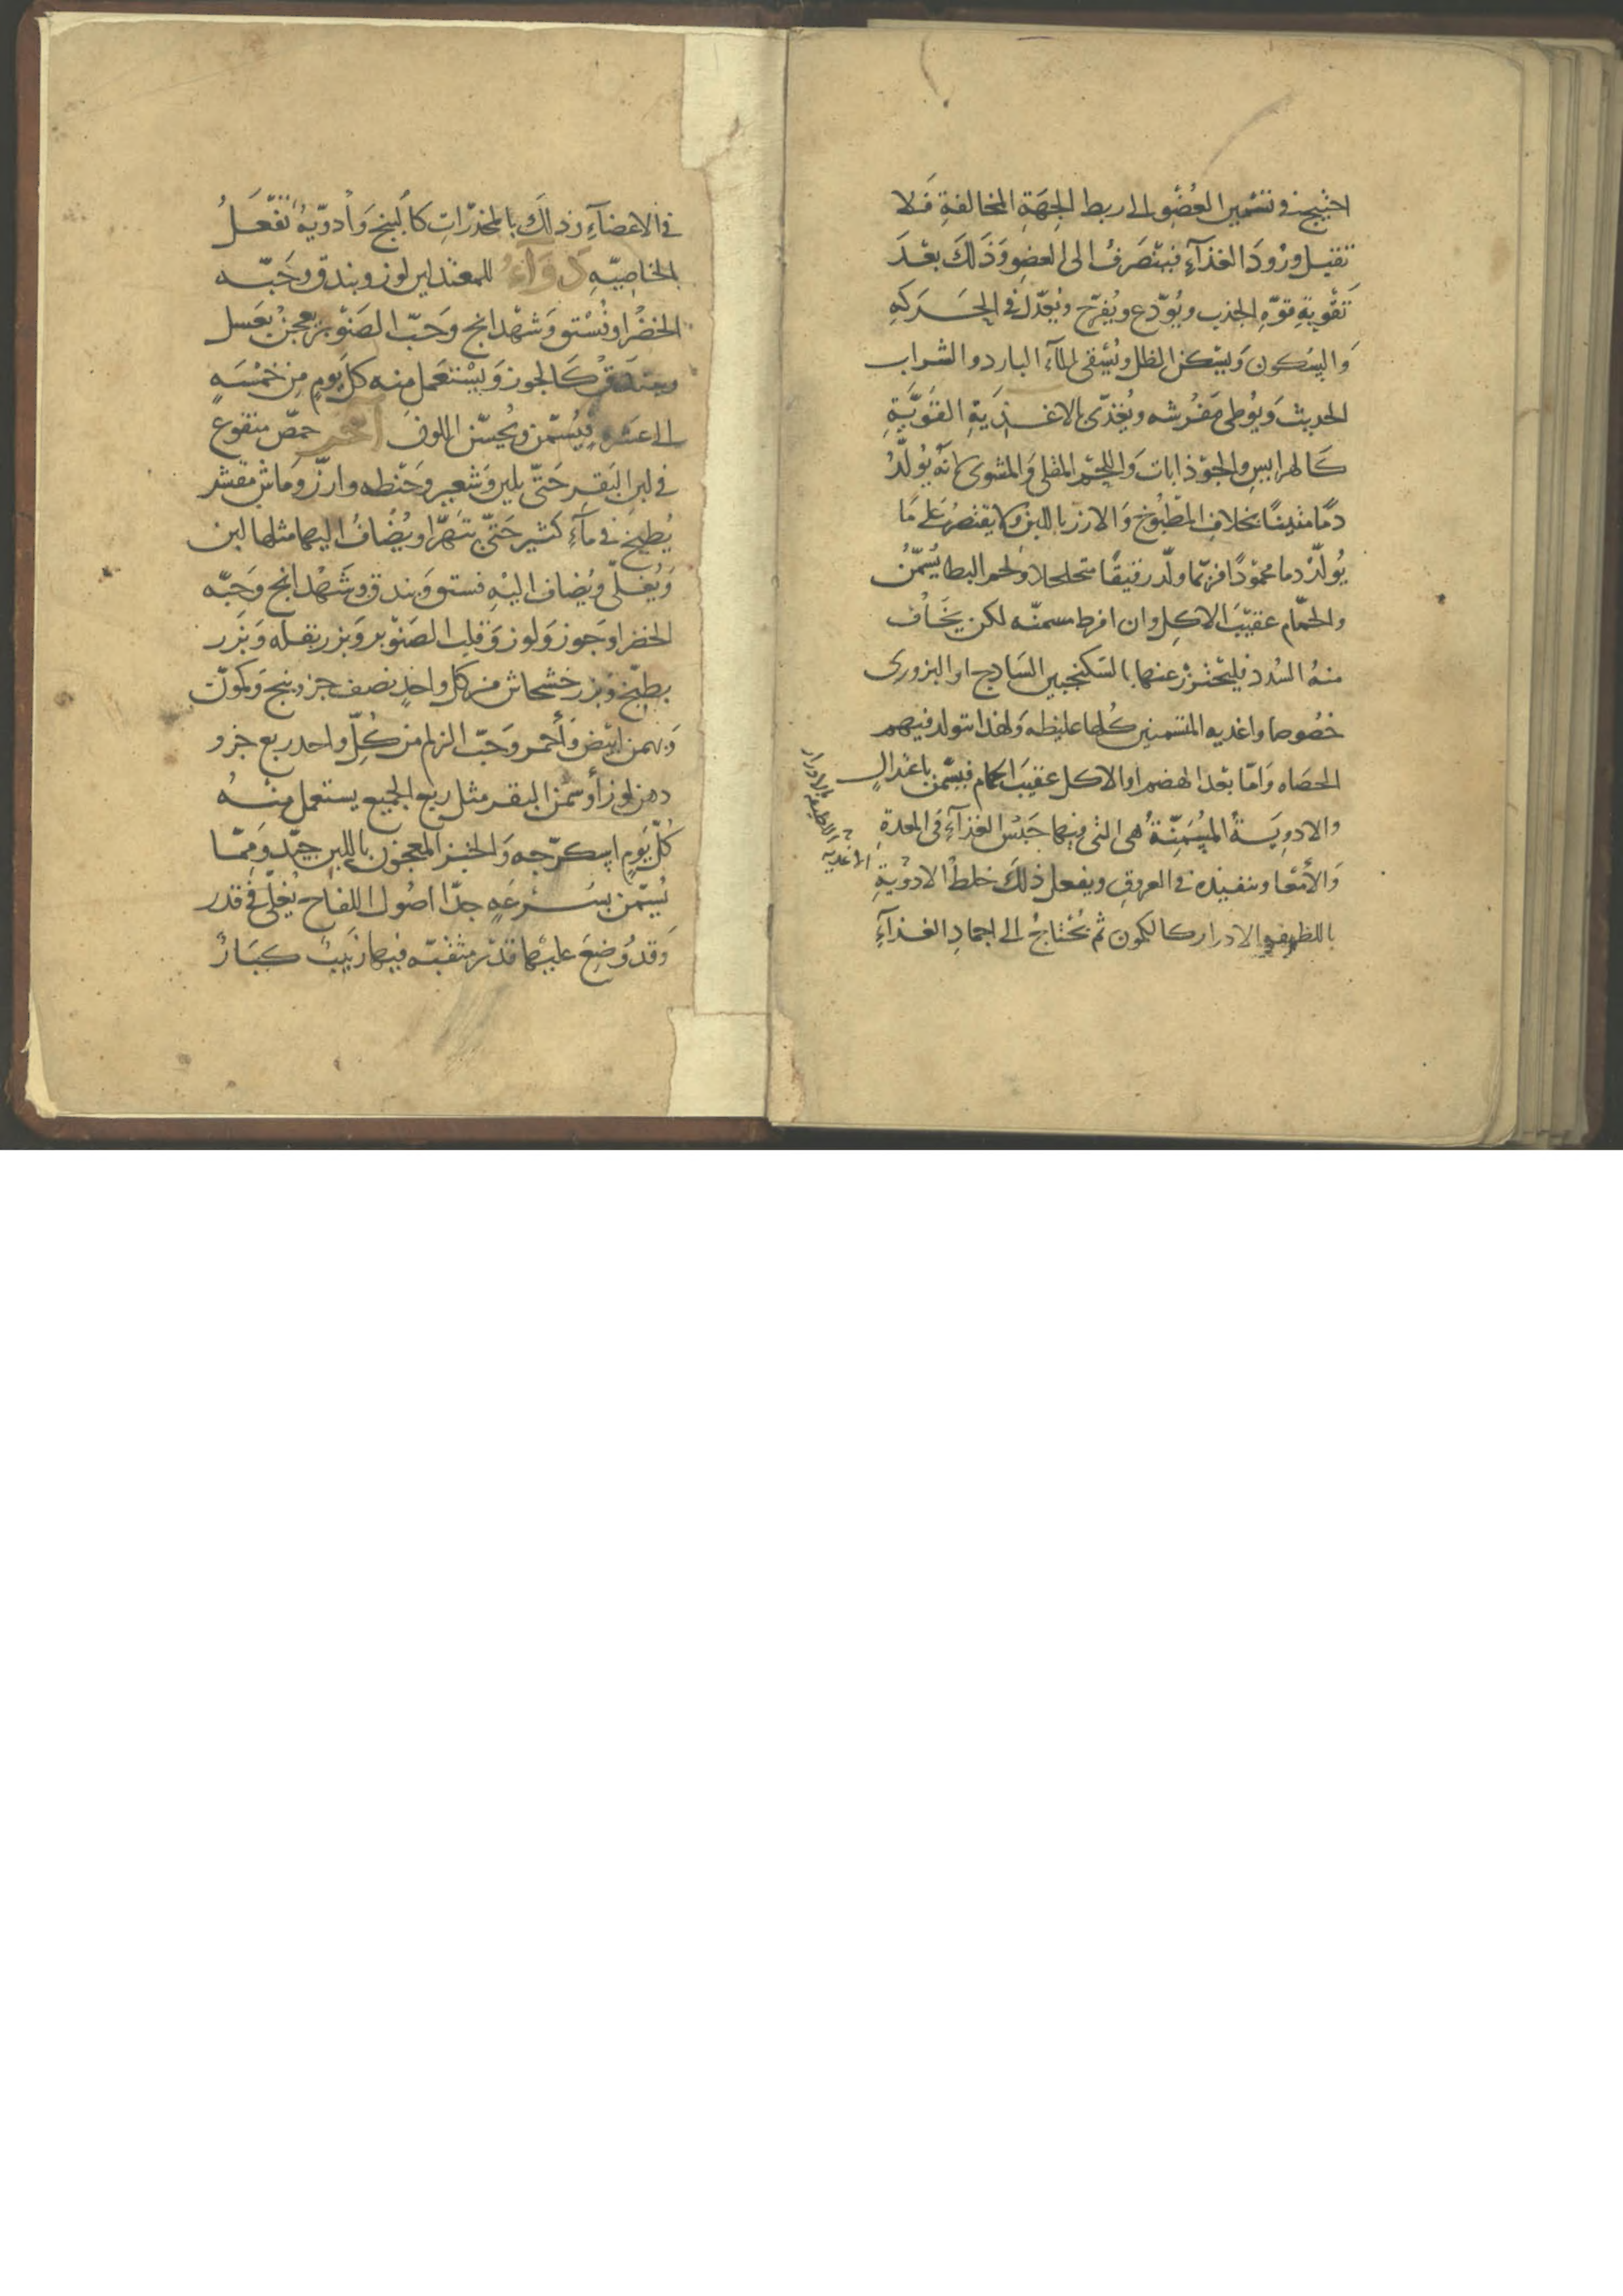 احتيج في تسمين العضو الى ربط الجهة المخالفة فلا
تقبل ورود الغذآء فيتصرف الى العضو وذلك بعد
تقوية قوه الجذب ويودع ويفرح ويعدل في الحركه
والسكون ويسكن الظل ويسقى المآء البارد والشراب
الحديث ويوطى مفرشه ويغذى بالاغذية القوية
كالهرايس والجوذابات واللحم المقلى والمشوى فانه يولد
دما متينا بخلاف المطبوخ والارز باللبن ولا يقتصر على ما
يولد دما محمودا فربما ولد رقيقا متحلحلا ولحم البط يسمن
والحمام عقيب الاكل وان افرط سمنه لكن يخاف
منه السدد فليتحرز عنها بالسكنجبين السادج او البزورى
خصوصا واغذيه المتسمنين كلها غليظه ولهذا تتولد فيهم
الحصاه واما بعد الهضم او الاكل عقيب الحمام فيسمن باعتدال
والادوية المسمنة هى التى فيها حبس الغذآء فى المعدة
والأمعا وتنفيذه في العروق ويفعل ذلك خلط الادوية
باللطيفه الادرار كالكمون ثم يحتاج الى اجماد الغذآء
الاغديه اللطيفه الادرار
في الاعضآء وذلك بالمخدرات كالبنج وادوية تفعل
بالخاصيه دوآء للمعتدلين لوز وبندق وحبه
الخضرا وفستق وشهدانج وحب الصنوبر يعجن بعسل
ويبندق كالجوز ويستعمل منه كل يوم من خمسه
الى عشره فيسمن ويحسن اللون اخر حمص منقوع
في لبن البقر حتى يلين وشعير وحنطه وارز وماش مقشر
يطبخ في مآء كثير حتى تتهرا ويضاف اليها مثلها لبن
ويغلى ويضاف اليه فستق وبندق وشهدانج وحبه
الخضرا وجوز ولوز وقلب الصنوبر وبزر بقله وبزر
بطيخ وبزر خشخاش من كل واحد نصف جزو بنج وكمون
وبهمن ابيض وأحمر وحب الزلم من كل واحد ربع جزو
دهن لوز أو سمن البقر مثل ربع الجميع يستعمل منه
كل يوم اسكرجه والخبز المعجون باللبن جيد ومما
يسمن بسرعه جدا اصول اللفاح يغلى في قدر
وقد وضع عليها قدر مثقبه فيها زبيب كبار